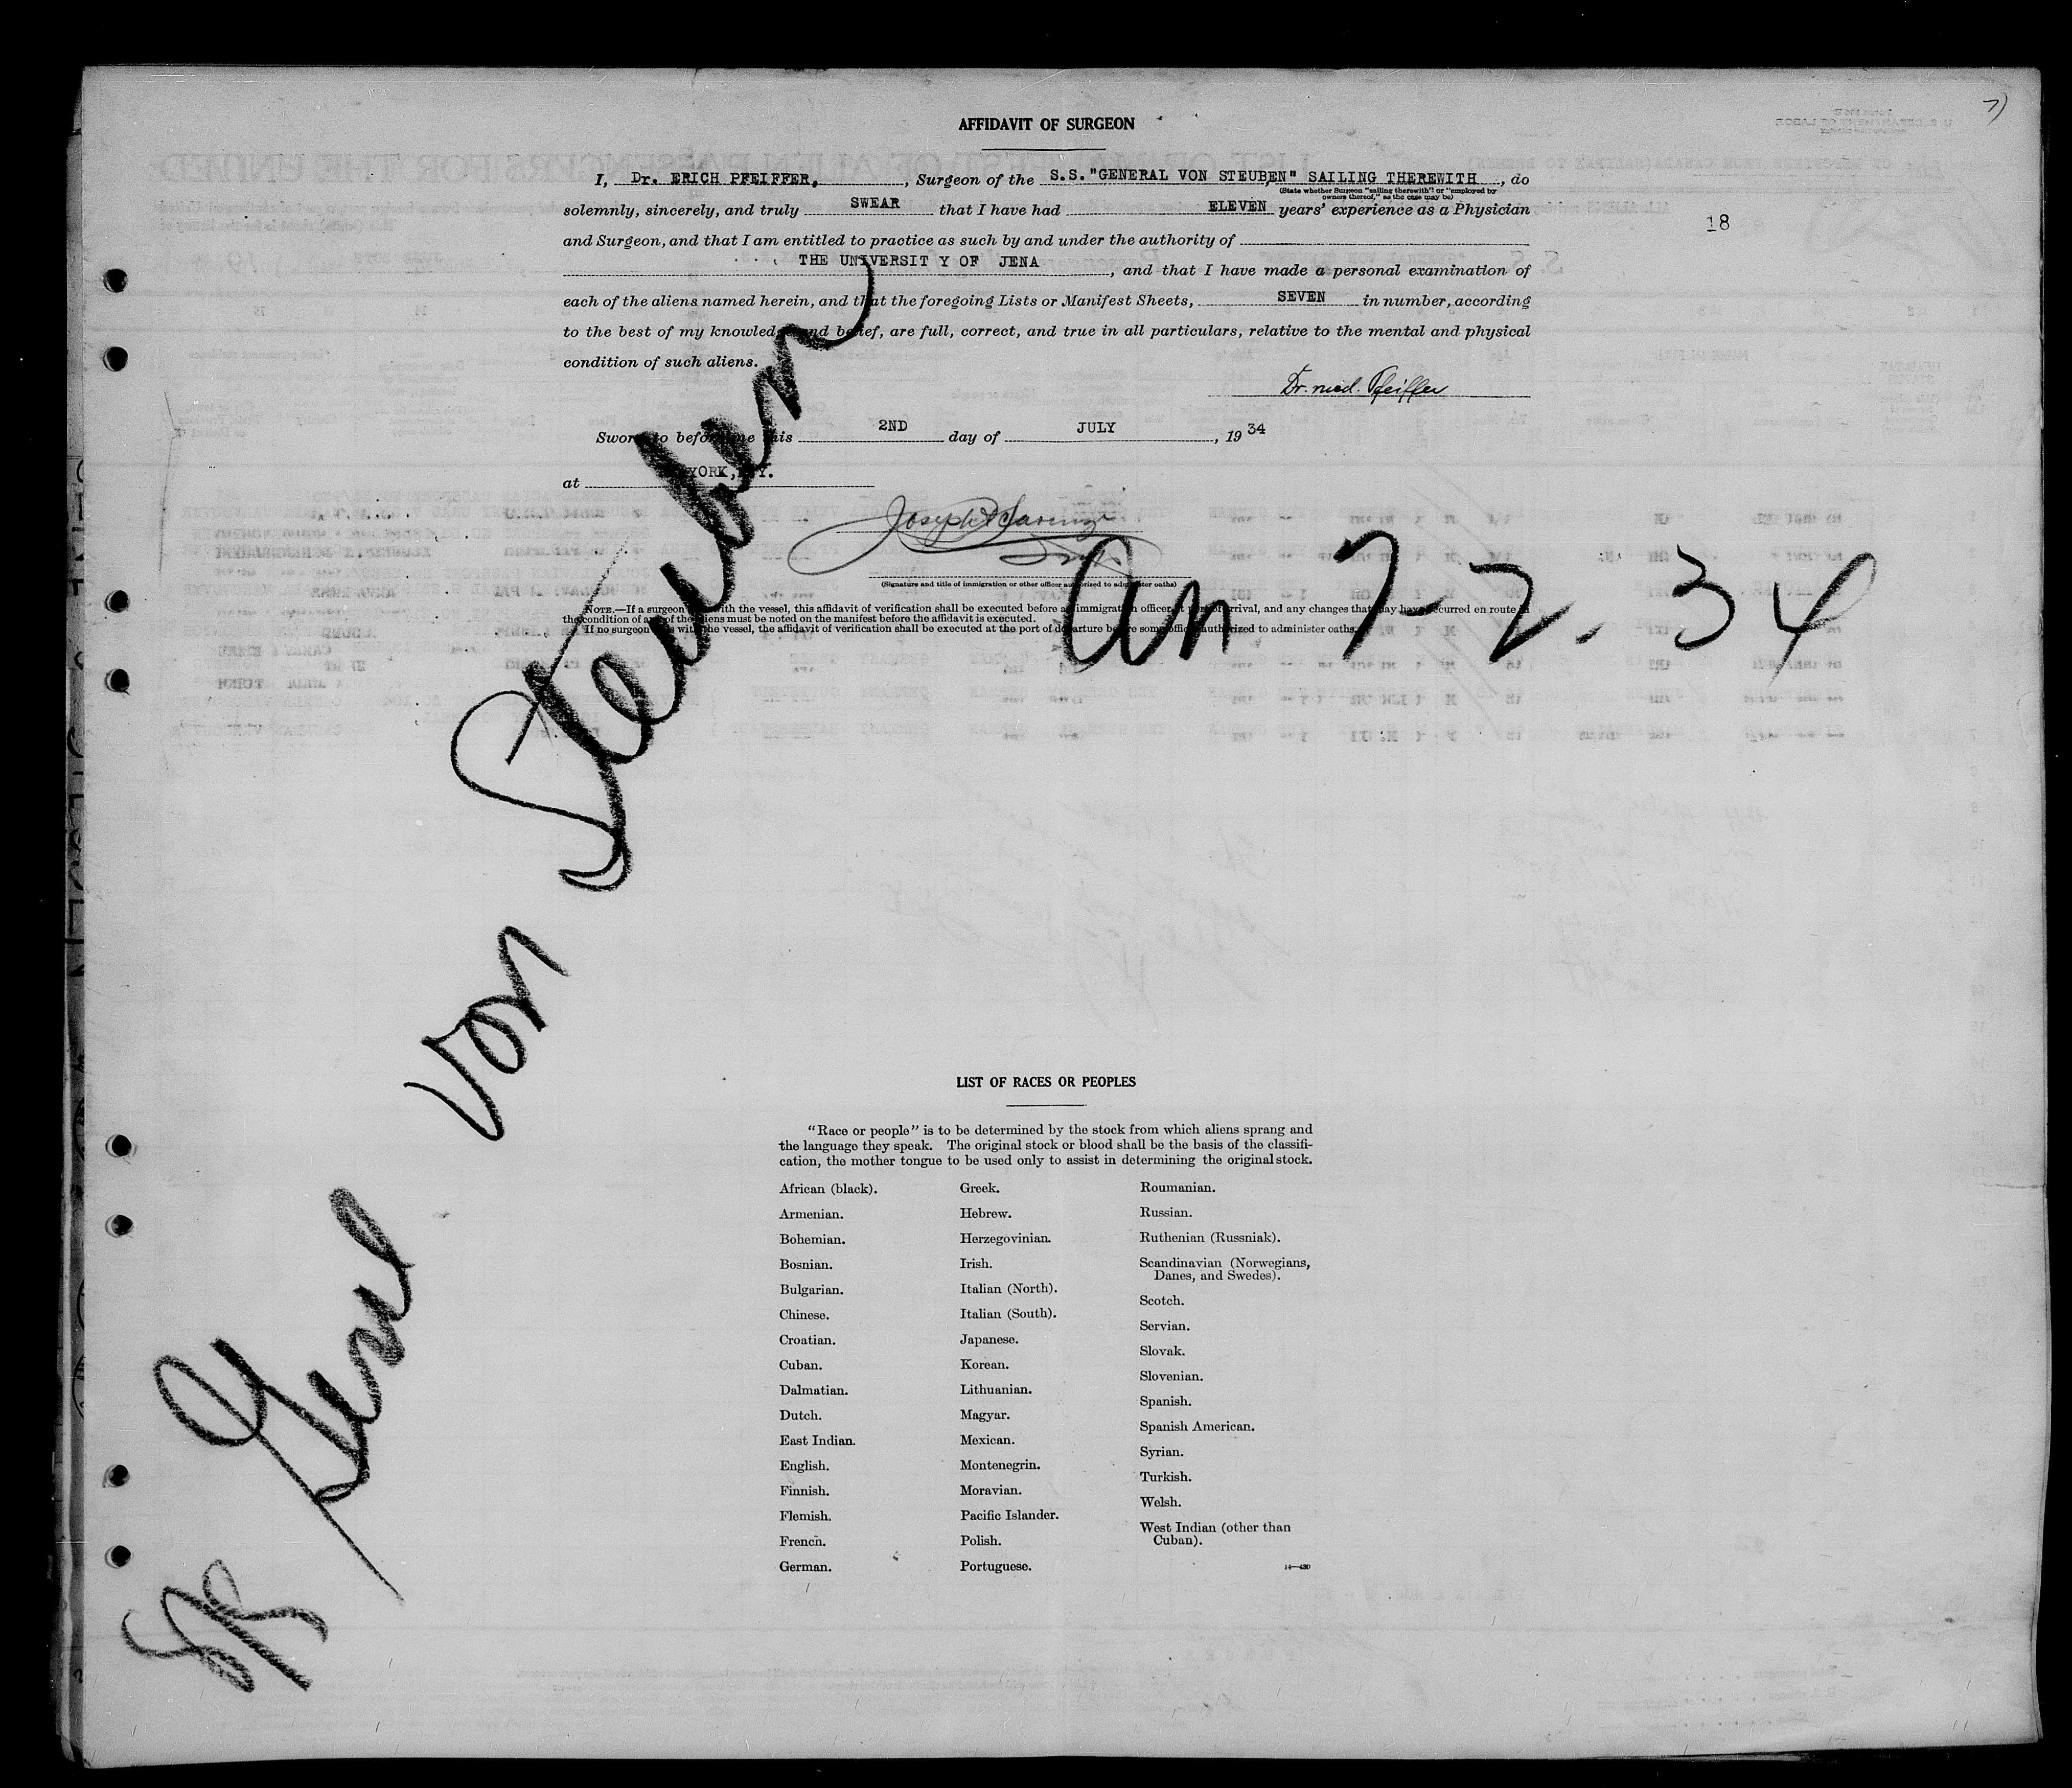 7)
AFFIDAVIT OF SURGEON
I, Dr. ERICH PFEIFFER, , Surgeon of the S.S."GENERAL VON STEUBEN" SAILING THEREWITH , do
(State whether Surgeon "sailing therewith" or "employed by
owners thereof," as the case may be)
solemnly, sincerely, and truly SWEAR that I have had ELEVEN years' experience as a Physician
18
and Surgeon, and that I am entitled to practice as such by and under the authority of
THE UNIVERSIT Y OF JENA , and that I have made a personal examination of
each of the aliens named herein, and that the foregoing Lists or Manifest Sheets, SEVEN in number, according
to the best of my knowledge and belief, are full, correct, and true in all particulars, relative to the mental and physical
condition of such aliens.
Dr. med. Pfeiffer
Sworn to before me this 2ND day of JULY , 19 34
at YORK, N.Y.
Joseph
(Signature and title of immigration or other officer authorized to administer oaths)
NOTE.—If a surgeon with the vessel, this affidavit of verification shall be executed before an immigration officer at port of arrival, and any changes that may have occurred en route in
the condition of any of the aliens must be noted on the manifest before the affidavit is executed.
If no surgeon is with the vessel, the affidavit of verification shall be executed at the port of departure before some officer authorized to administer oaths.
an 7-2. 34
SS Genl von Steuben
LIST OF RACES OR PEOPLES
"Race or people" is to be determined by the stock from which aliens sprang and
the language they speak. The original stock or blood shall be the basis of the classifi-
cation, the mother tongue to be used only to assist in determining the original stock.
African (black).
Armenian.
Bohemian.
Bosnian.
Bulgarian.
Chinese.
Croatian.
Cuban.
Dalmatian.
Dutch.
East Indian.
English.
Finnish.
Flemish.
French.
German.
Greek.
Hebrew.
Herzegovinian.
Irish.
Italian (North).
Italian (South).
Japanese.
Korean.
Lithuanian.
Magyar.
Mexican.
Montenegrin.
Moravian.
Pacific Islander.
Polish.
Portuguese.
Roumanian.
Russian.
Ruthenian (Russniak).
Scandinavian (Norwegians,
Danes, and Swedes).
Scotch.
Servian.
Slovak.
Slovenian.
Spanish.
Spanish American.
Syrian.
Turkish.
Welsh.
West Indian (other than
Cuban).